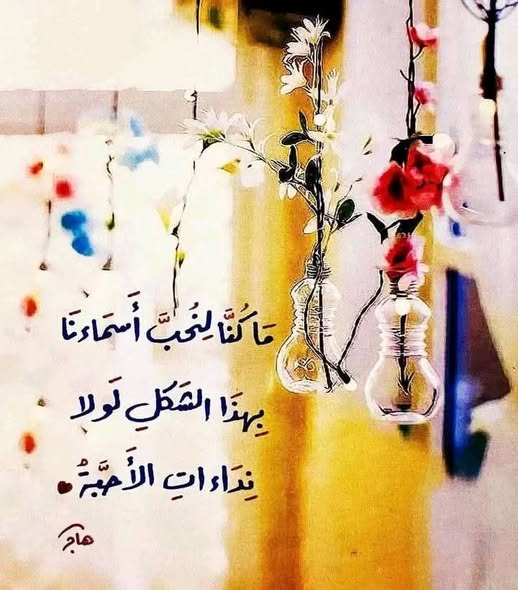 مَا كُنَّا لِنُحبَّ أَسمَاءنَا
بِهذَا الشَكلِ لَولا
نِدَاءاتِ الأَحبَّةُ
هاجر